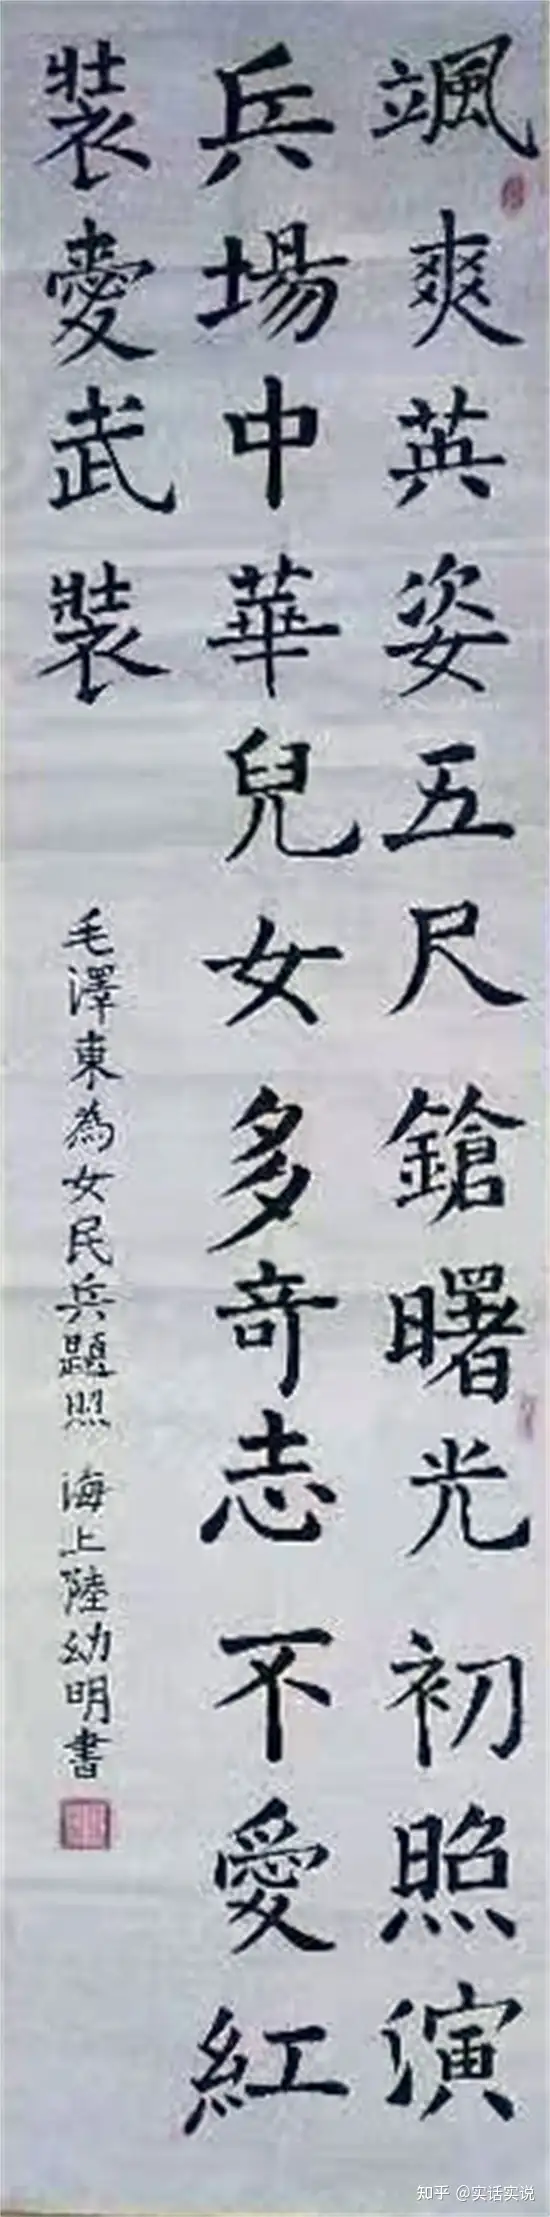 颯爽英姿五尺鎗曙光初照演
兵場中華兒女多奇志不愛紅
裝愛武裝
毛澤東為女民兵題照 海上陸幼明書
知乎 @实话实说